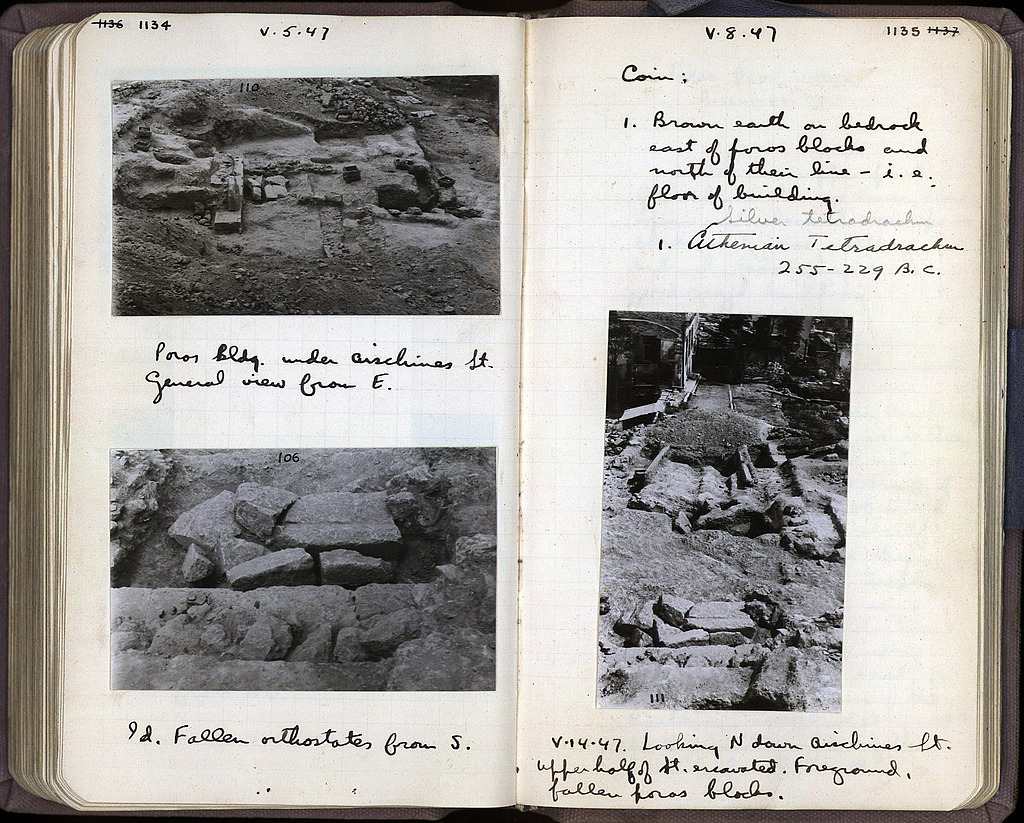 1136 1134
V.5.47
110
Poros bldg. under Aischines St.
General view from E.
106
Id. Fallen orthostates from S.
V.8.47
1135 1137
Coin:
1. Brown earth on bedrock
east of poros blocks and
north of their line – i.e.
floor of building.
Silver tetradrachm
1. Athenian Tetradrachm
255-229 B.C.
111
V.14.47. Looking N down Aischines St.
upper half of St. excavated. Foreground,
fallen poros blocks.